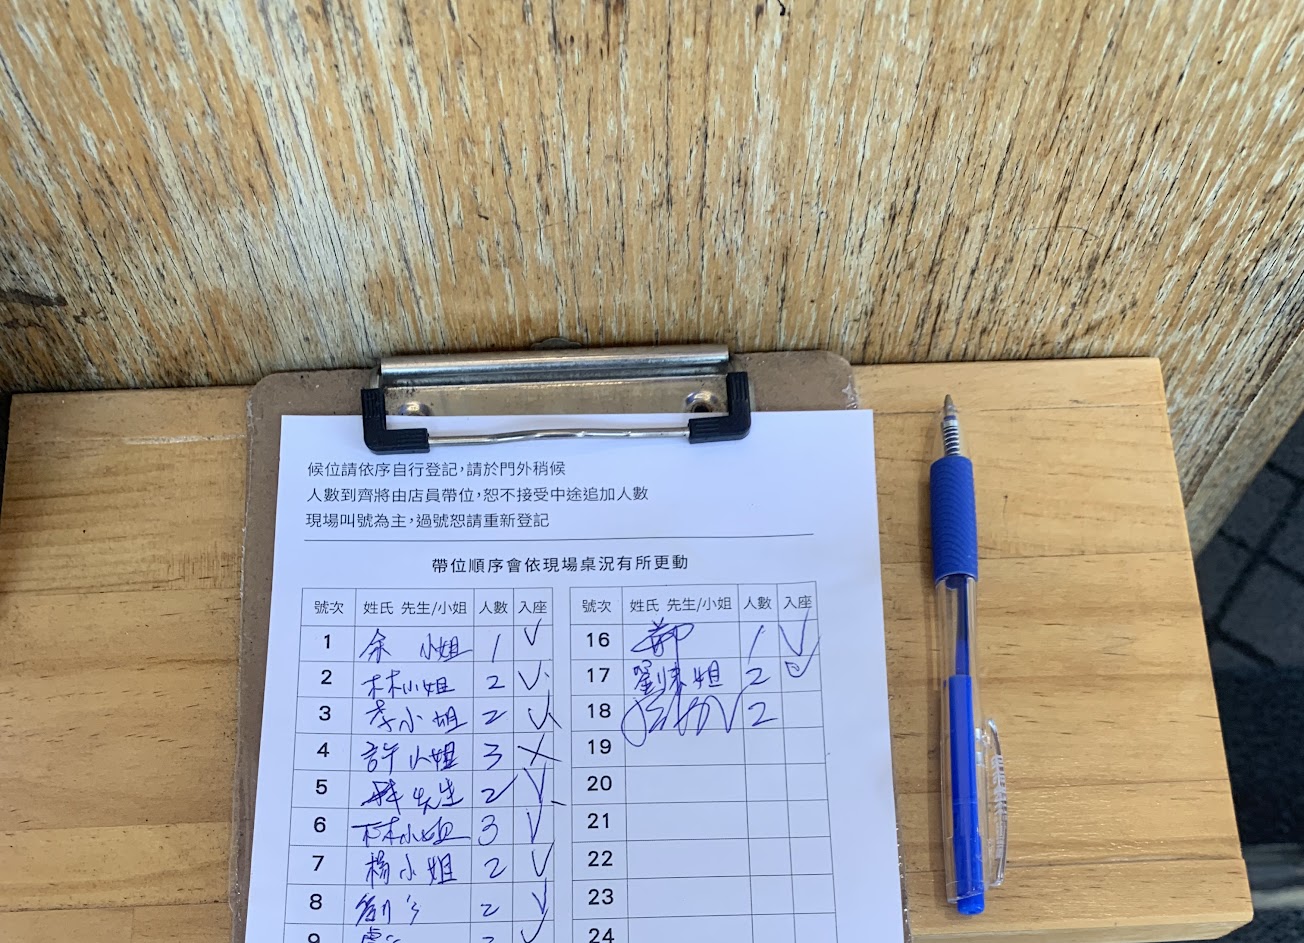 候位請依序自行登記，請於門外稍候
人數到齊將由店員帶位，恕不接受中途追加人數
現場叫號為主，過號恕請重新登記
帶位順序會依現場桌況有所更動
號次 姓氏 先生/小姐 人數 入座
1 余 小姐 1 V
2 林小姐 2 V
3 李小姐 2 V
4 許小姐 3 X
5 先生 2 V
6 林小姐 3 V
7 楊小姐 2 V
8 劉 2 V
9
號次 姓氏 先生/小姐 人數 入座
16 鄭 1 V
17 劉 小姐 2 V
18 2
19
20
21
22
23
24